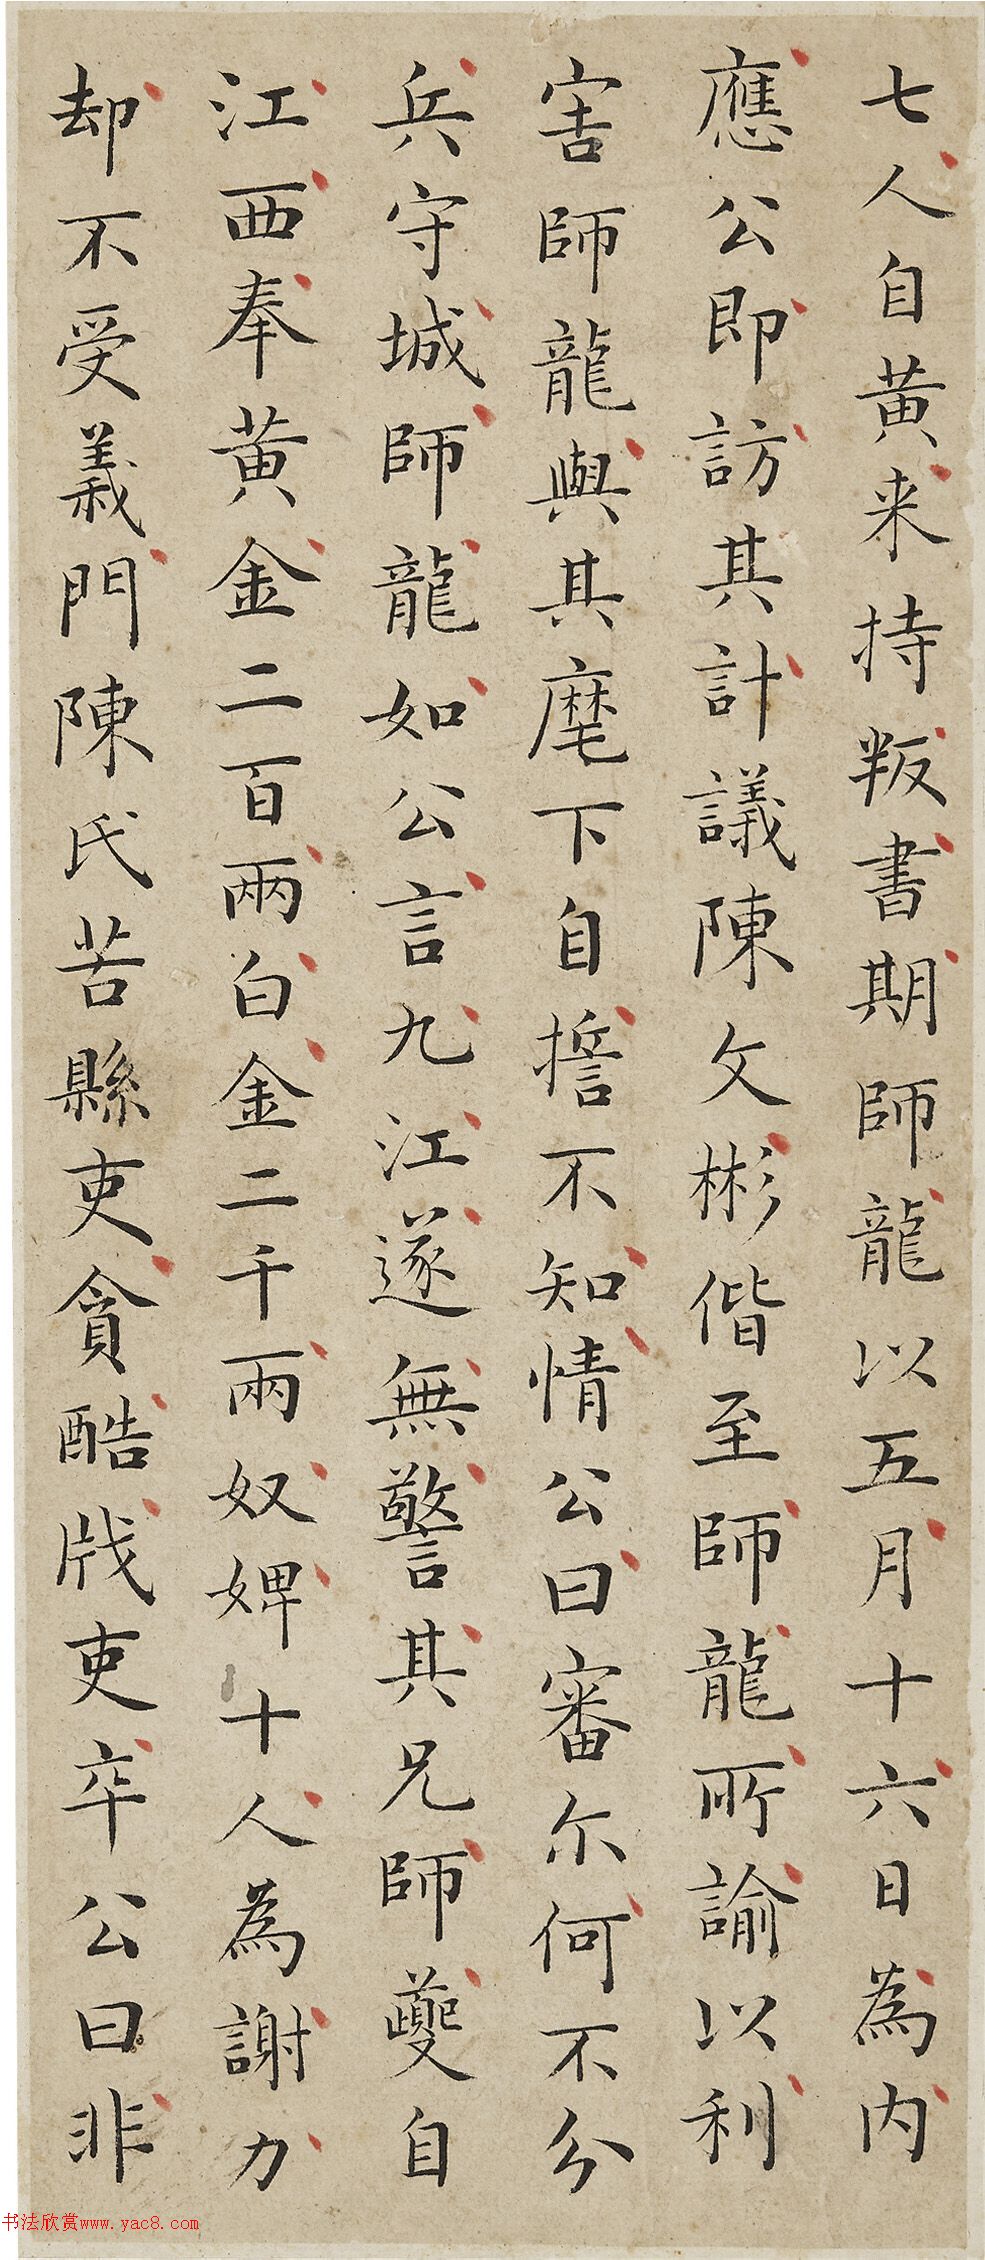 七人自黄来持叛書期師龍以五月十六日為内
應公即訪其計議陳文彬偕至師龍所諭以利
害師龍與其麾下自擔不知情公曰審尒何不分
兵守城師龍如公言九江遂無警其兄師夔自
江西奉黄金二百兩白金二千兩奴婢十人為謝力
却不受義門陳氏苦縣吏貪酷戕吏卒公曰非
书法欣赏www.yac8.com